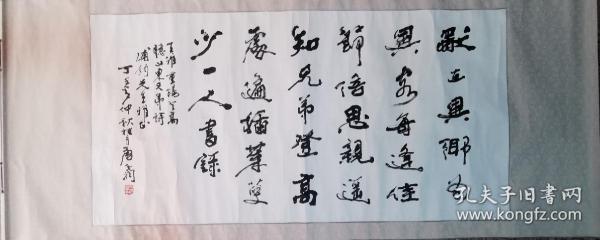 獨在異鄉為
異客每逢佳
節倍思親遙
知兄弟登高
處遍插茱萸
少一人書錄
王維重陽登高
憶山東兄弟詩
先生雅正
丁亥仲秋
孔夫子旧书网
www.kongfz.com